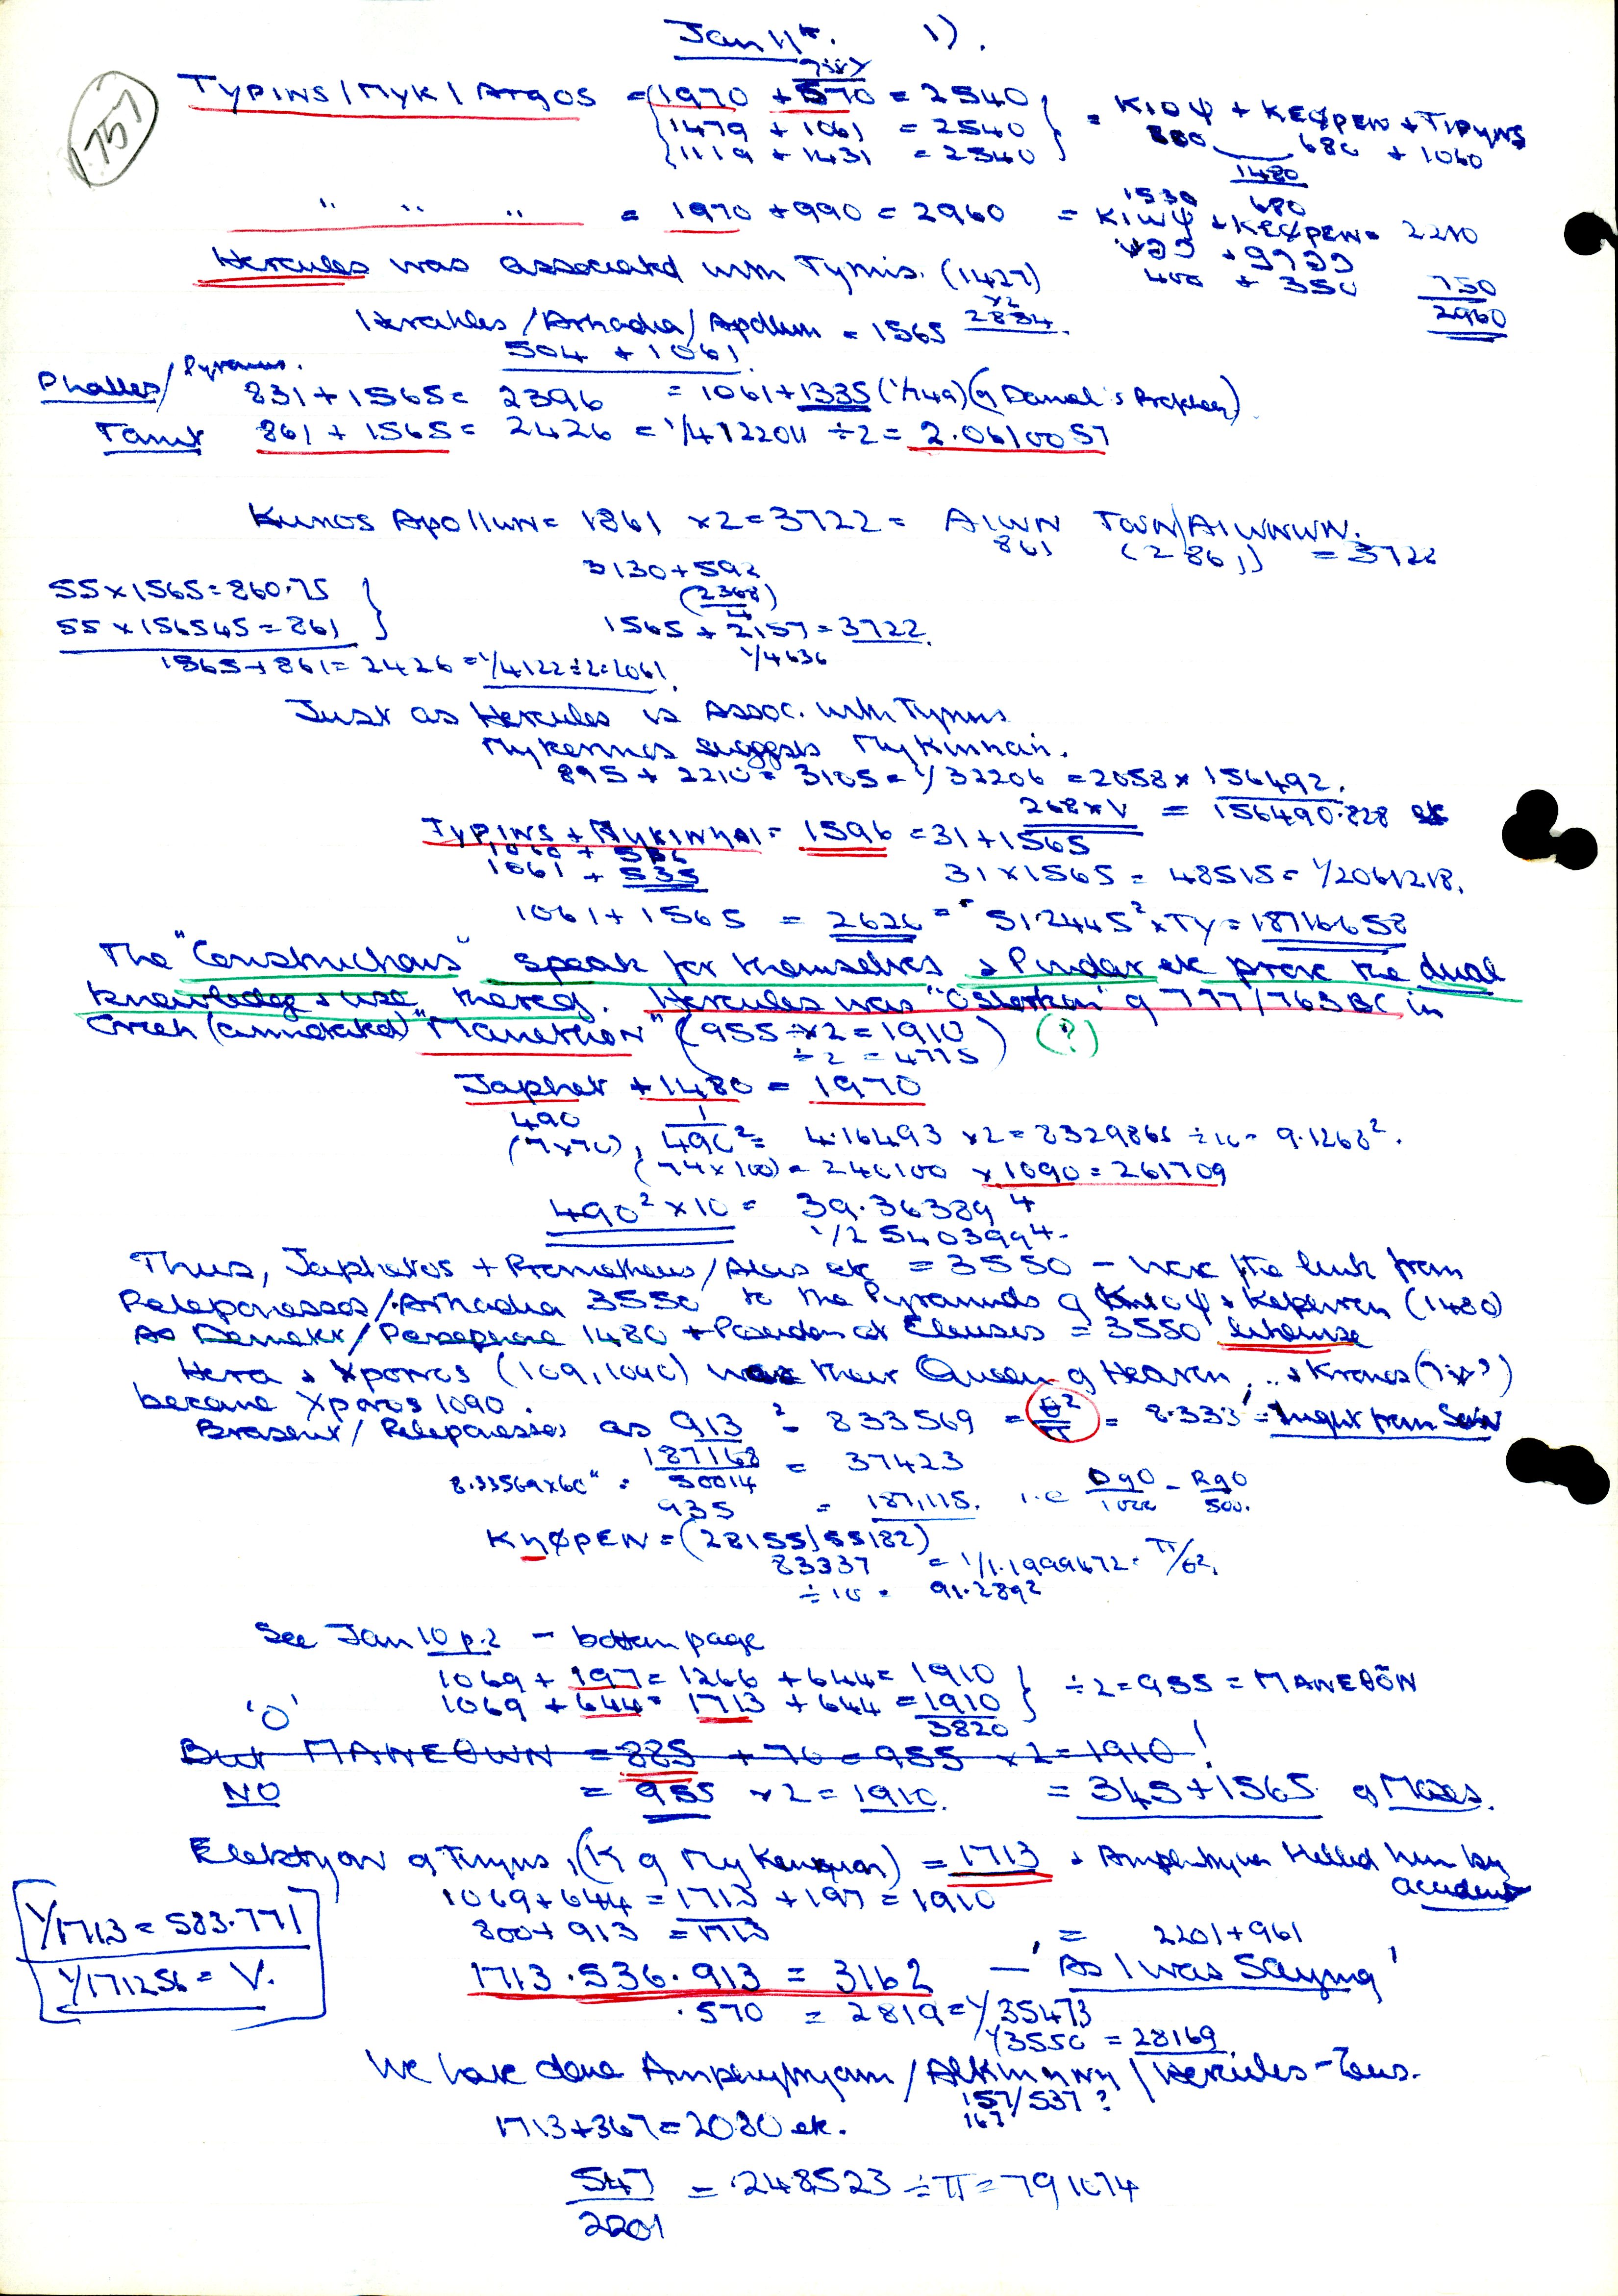 Jan 11th. 1).
1757
TYPINS / MYK / ArgOS = 1970 + 570 = 2540
1479 + 1061 = 2540
1119 + 1431 = 2540
= KIOΨ + KEΦPEN + TIPYNS
800 680 + 1060
1480
" " " = 1970 + 990 = 2960 = KIWΨ + KEΦPEN = 2210
1530 680
400 + 350 750
2960
Hercules was associated with Tyrnis. (1427)
x2
2854.
Herakles / Arkadia / Apollwn = 1565
504 + 1061
Phalles / Pyramus.
831 + 1565 = 2396 = 1061 + 1335 (1/749) (of Daniel's Prophecy).
861 + 1565 = 2426 = 1/4122011 ÷ 2 = 2.0610057
Kunos Apollwn = 1861 x 2 = 3722 = AIWN TWN/AIWNWN.
861 (2861) = 3722
3130 + 592
(2368)
4
55 x 1565 = 860.75
55 x 156545 = 861
1565 + 2157 = 3722.
1/4636
1565 + 861 = 2426 = 1/4122 ÷ 2 = 2061.
Just as Hercules is Assoc. with Tyrnns
Mykerinos suggests MyKinnai.
895 + 2210 = 3105 = 1/32206 = 2058 x 156492.
268 x V = 156490.828 etc
TYPINS + MYKINHAI = 1596 = 31 + 1565
1060 + 536
1061 + 535
31 x 1565 = 48515 = 1/2061218.
1061 + 1565 = 2626 = 51.2445² x TY = 18716658
The "Constructions" speak for themselves & Pindar etc prove the dual
knowledge & use thereof. Hercules was "Osorkon" of 777/763 BC in
Greek (annotated) "Manethon" (955 x 2 = 1910) (?)
÷ 2 = 4775
Japhet + 1480 = 1970
490
(7x70), 1/490² = 4.16493 x 2 = 8329865 ÷ 10 = 9.1268².
(74 x 100) = 240100 x 1090 = 261709
490² x 10 = 39.36389⁴
1/2540399⁴
Thus, Japhetos + Prometheus / Atlas etc = 3550 – was the link from
Peleponessos / Arkadia 3550 to the Pyramids of KhioΨ & Kephren (1480)
As Demeter / Persephone 1480 + Poseidon at Eleusis = 3550 likewise
Hera & Xporros (109, 1040) was their Queen of Heaven... & Kronos
became Xporos 1090.
Peleponesses as 913² = 833569 = θ²/π = 8.333' = light from Sun
187168/50014 = 37423
8.33569x60" =
935 = 187,115. i.e D90/1000 = R90/500.
KηΦPEN = (28155/55182)
83337 = 1/1.1999672 = π/θ².
÷ 10 = 91.289²
See Jan 10 p.2 – bottom page
1069 + 197 = 1266 + 644 = 1910
1069 + 644 = 1713 + 644 = 1910
3820
÷ 2 = 955 = MANEθŌN
'O'
But MANEθWN = 885 + 70 = 955 x 2 = 1910!
NO = 955 x 2 = 1910. = 345 + 1565 of Moses.
Elektryon of Tiryns, (K of MyKennian) = 1713 & Amphitryon Killed him by
accident
1069 + 644 = 1713 + 197 = 1910
800 + 913 = 1713 = 2201 + 961
1/1713 = 583.771
1/171256 = V.
1713.536.913 = 3162 – 'As I was Saying'
.570 = 2819 = 1/35473
1/3550 = 28169
We have done Amphytryon / AlKmηνη / Hercules – Zeus.
157/537?
167
1713 + 367 = 2080 etc.
547/2201 = .248523 ÷ π = 791074